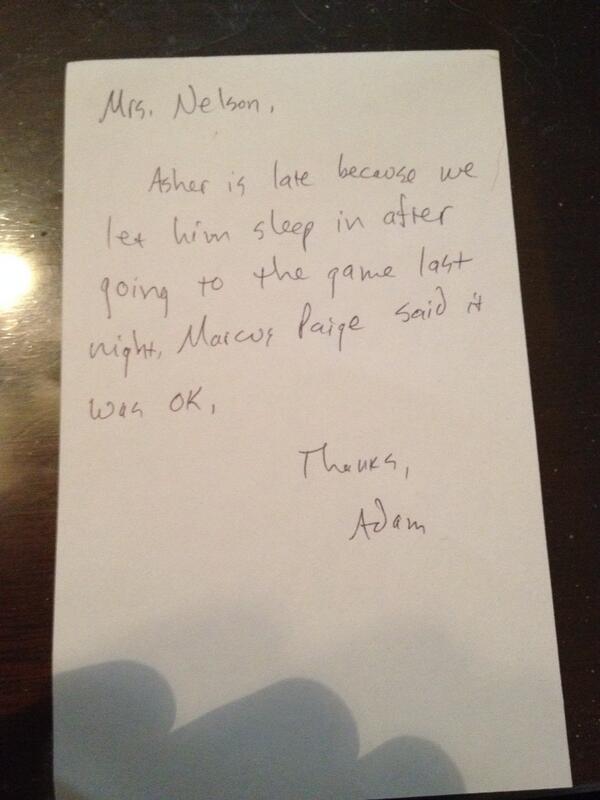 Mrs. Nelson,
Asher is late because we
let him sleep in after
going to the game last
night. Marcus Paige said it
was OK.
Thanks,
Adam